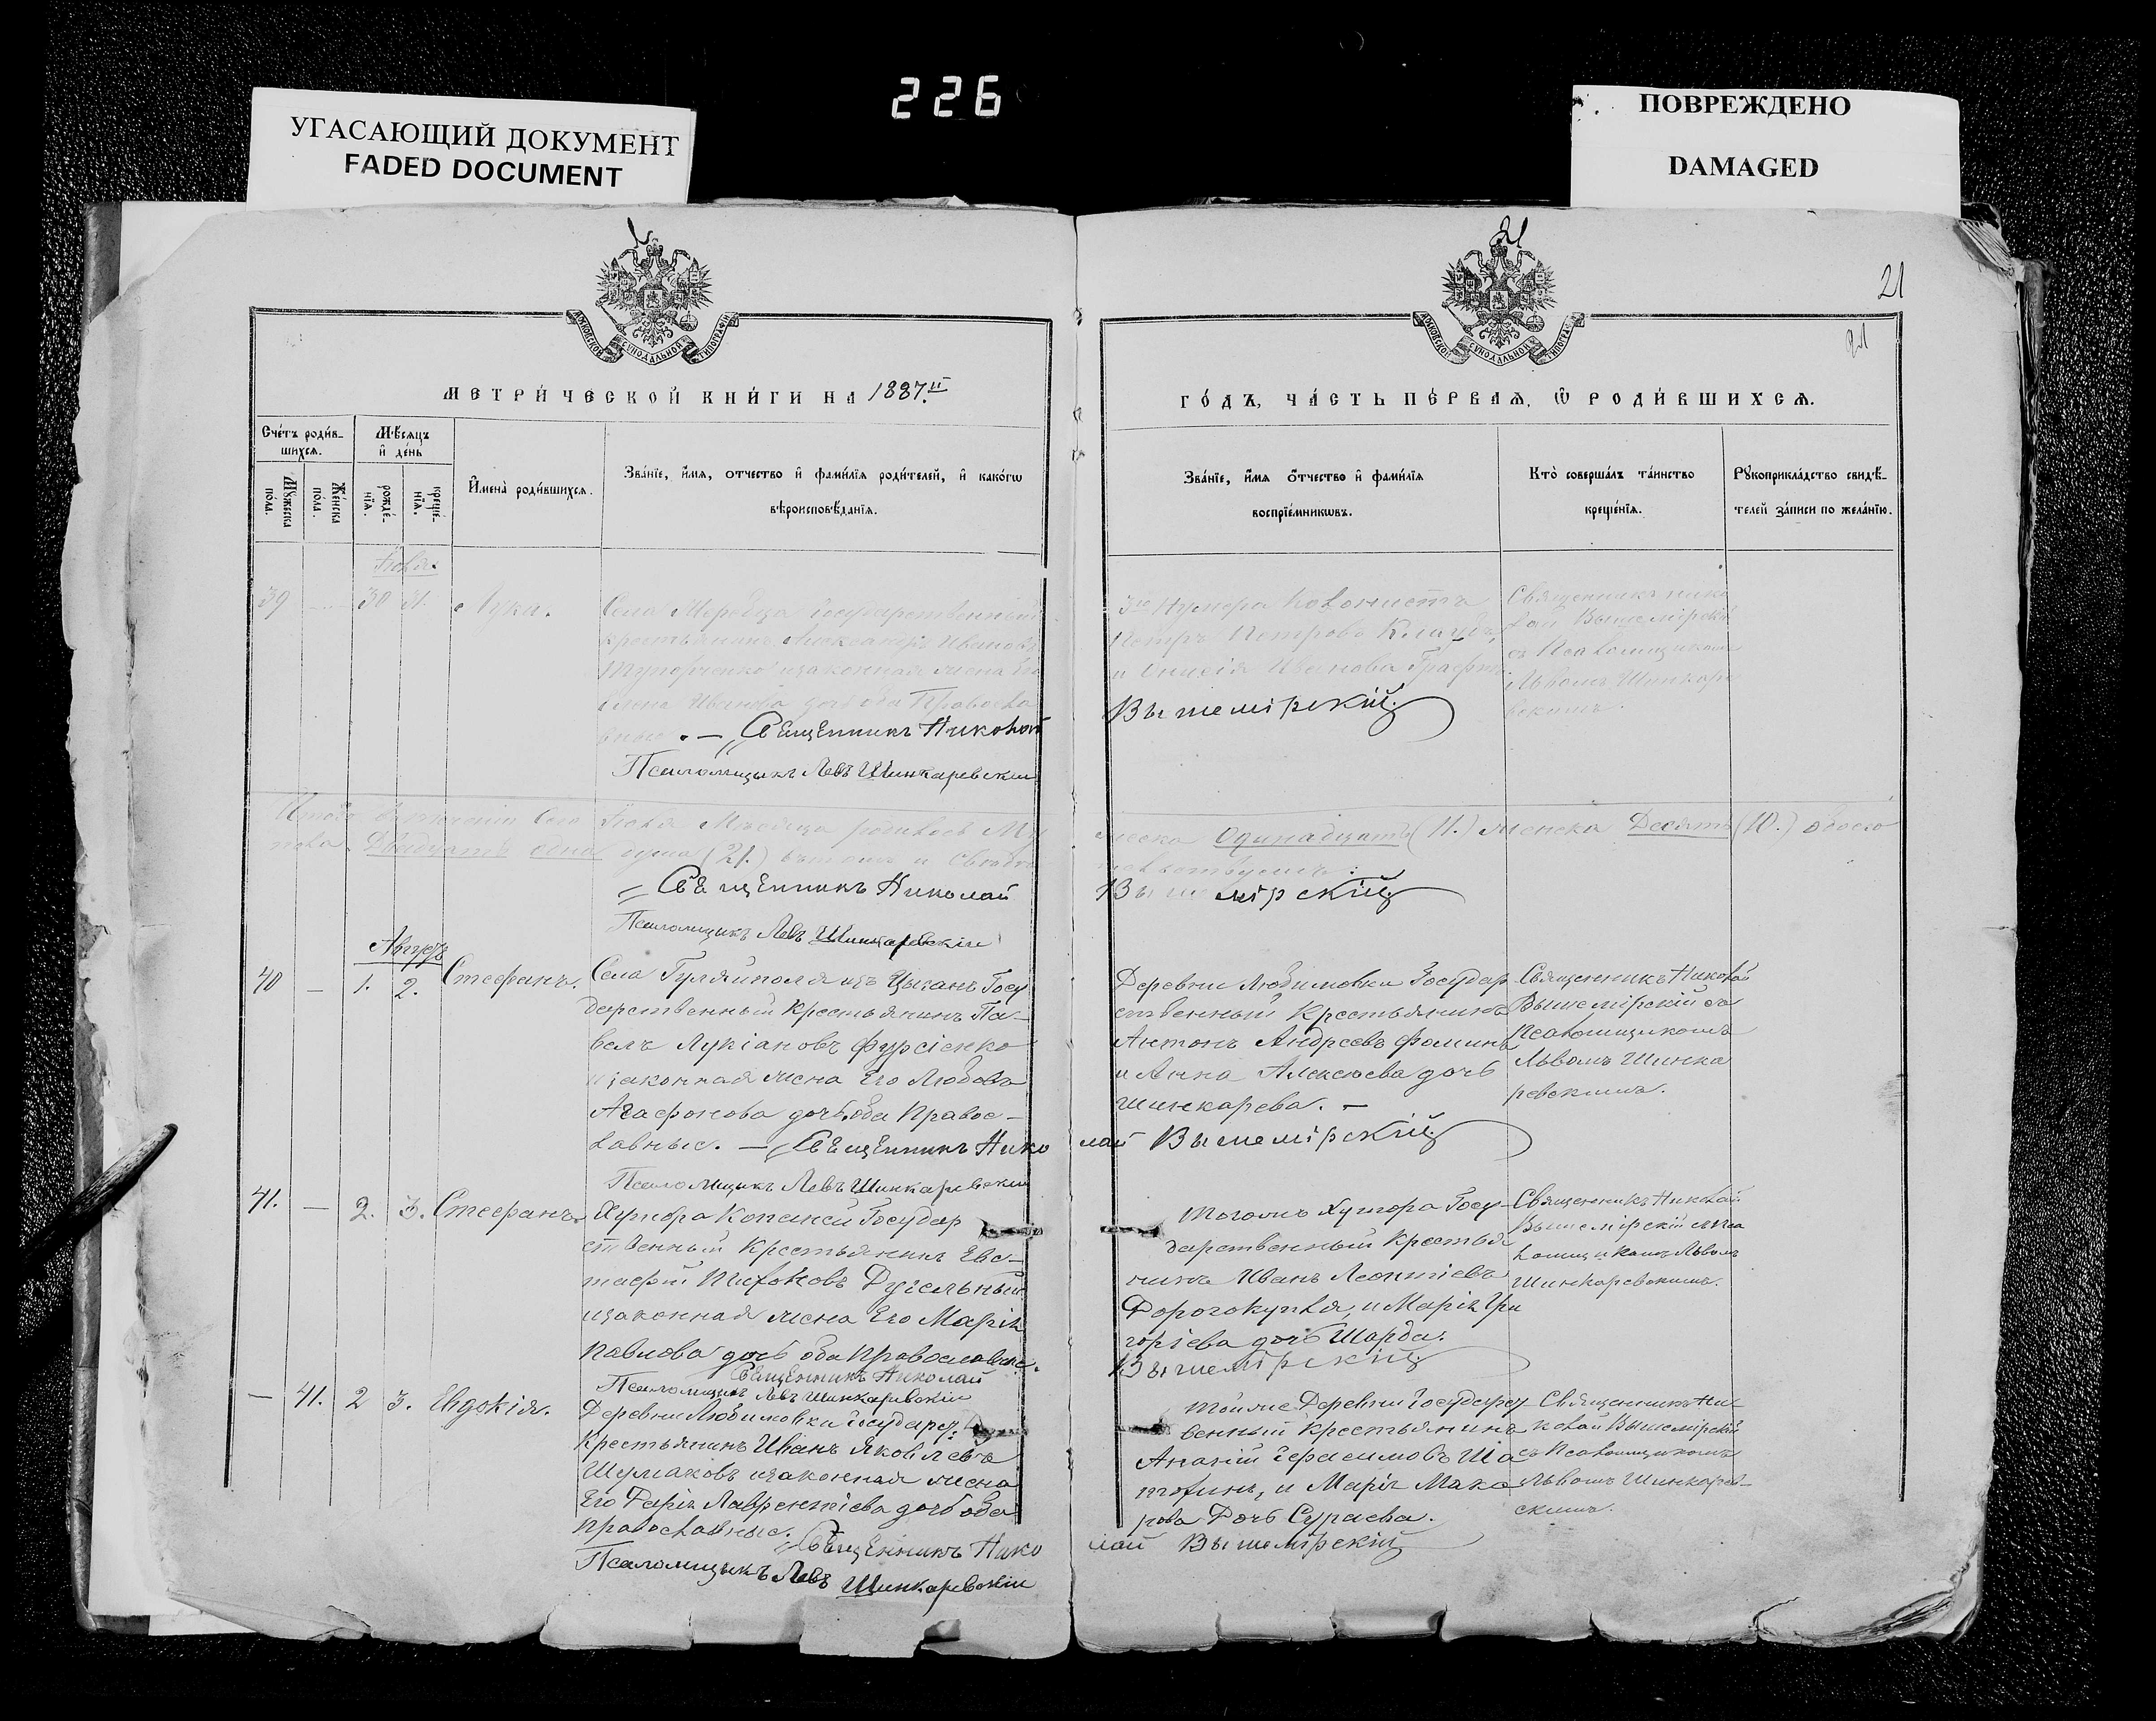 226
УГАСАЮЩИЙ ДОКУМЕНТ
FADED DOCUMENT
ПОВРЕЖДЕНО
DAMAGED
21
21
21
МЕТРИ́ЧЕСКОЙ КНИ́ГИ НА 1887.й
ГО́ДЪ, ЧА́СТЬ ПЕ́РВАѦ, Ѽ РОДИ́ВШИХСѦ.
Сче́тъ роди́в-
шихсѧ.
Мꙋ́жеска по́ла.
Же́нска по́ла.
Мѣ́сяцъ
и҆ де́нь
рожде́-
нїѧ.
креще́-
нїѧ.
И҆мена̀ роди́вшихсѧ.
Зва́нїе, и҆́мѧ, о҆тчество и҆ фами́лїѧ роди́телей, и҆ како́гѡ
вѣроисповѣ́данїѧ.
Зва́нїе, и҆́мѧ о҆́тчество и҆ фами́лїѧ
воспрїе́мникѡвъ.
Кто̀ соверша́лъ та́инство
креще́нїѧ.
Рꙋкоприкла́дство свидѣ́-
телей за́писи по жела́нїю.
39 — 30 31. Лука.
Села
государственный
крестьянинъ Александръ Ивановъ
изаконная жена Его
Елена Иванова дочь оба Правосла
вные. — Священникъ Николай
Псаломщикъ Левъ Шинкаревскій
Колониста
Петръ Петровъ
и Анисія Иванова
Вышемірскій.
Священникъ Нико
лай Вышемірскій
съ Псаломщикомъ
Львомъ Шинкаре
вскимъ.
Итого Іюля Мѣсяца родилось Му
жеска Одинадцать (11.) женска Десять (10.) обоего
пола Двадцать одна душа (21.)
Священникъ Николай
Вышемірскій
Псаломщикъ Левъ Шинкаревскій
Августъ
40 — 1. 2. Стефанъ.
Села Гуляйполя изъ Цыганъ Госу
дарственный Крестьянинъ Па-
велъ Лукіановъ Фурсіенко
изаконная жена Его Любовь
Агафонова дочь, оба Правос-
лавные. — Священникъ Нико
лай Вышемірскій
Псаломщикъ Левъ Шинкаревскій
Деревни Любимовки Государ
ственный Крестьянинъ
Антонъ Андреевъ Фоминъ
и Анна Алексѣева дочь
Шинкарева. —
Священникъ Николай
Вышемірскій съ
Псаломщикомъ
Львомъ Шинка
ревскимъ.
41. — 2. 3. Стефанъ.
Хутора Копаней Государ
ственный Крестьянинъ Евс-
тафій
изаконная жена Его Марія
Павлова дочь оба Православные.
Священникъ Николай
Псаломщикъ Левъ Шинкаревскій
Тогожъ Хутора Госу-
дарственный Крестья
нинъ Иванъ Леонтіевъ
Дорогокупля, и Марія Гри
горіева дочь Шарда.
Вышемірскій
Священникъ Николай
Вышемірскій
Львомъ
Шинкаревскимъ.
— 41. 2 3. Евдокія.
Деревни Любимовки Государс.
Крестьянинъ Иванъ Яковлевъ
Шумаковъ изаконная жена
Его Дарія Лаврентіева дочь оба
Православные.
Священникъ Нико
лай Вышемірскій
Псаломщикъ Левъ Шинкаревскій
Тойже Деревни Государст
венный Крестьянинъ
Ананій Герасимовъ Ша
тохинъ, и Марія Мака
рова Дочь Сураева.
Священникъ Ни-
колай Вышемірскій
съ Псаломщикомъ
Львомъ Шинкарев-
скимъ.